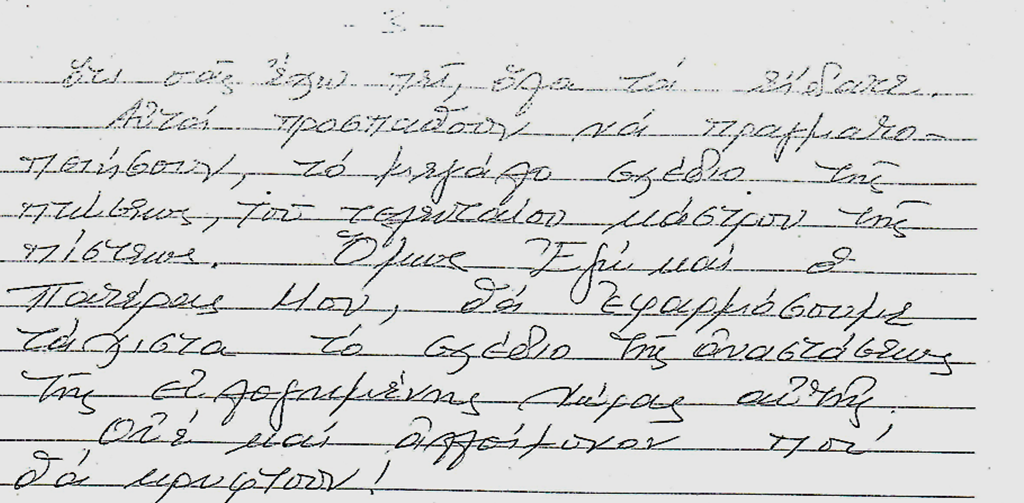 - 3 -
ὅτι σᾶς ἔχω πεῖ, ὅλα τά εἴδατε.
Αὐτοί προσπαθοῦν νά πραγματο-
ποιήσουν, τό μεγάλο σχέδιο τῆς
πτώσεως, τοῦ τελευταίου κάστρου τῆς
πίστεως. Ὅμως Ἐγώ καί ὁ
Πατέρας Μου, θά ἐφαρμόσουμε
τάχιστα τό σχέδιο τῆς ἀναστάσεως
τῆς εὐλογημένης χώρας αὐτῆς.
Οὐέ καί ἀλλοίμονον ποῦ
θά κρυφτοῦν!